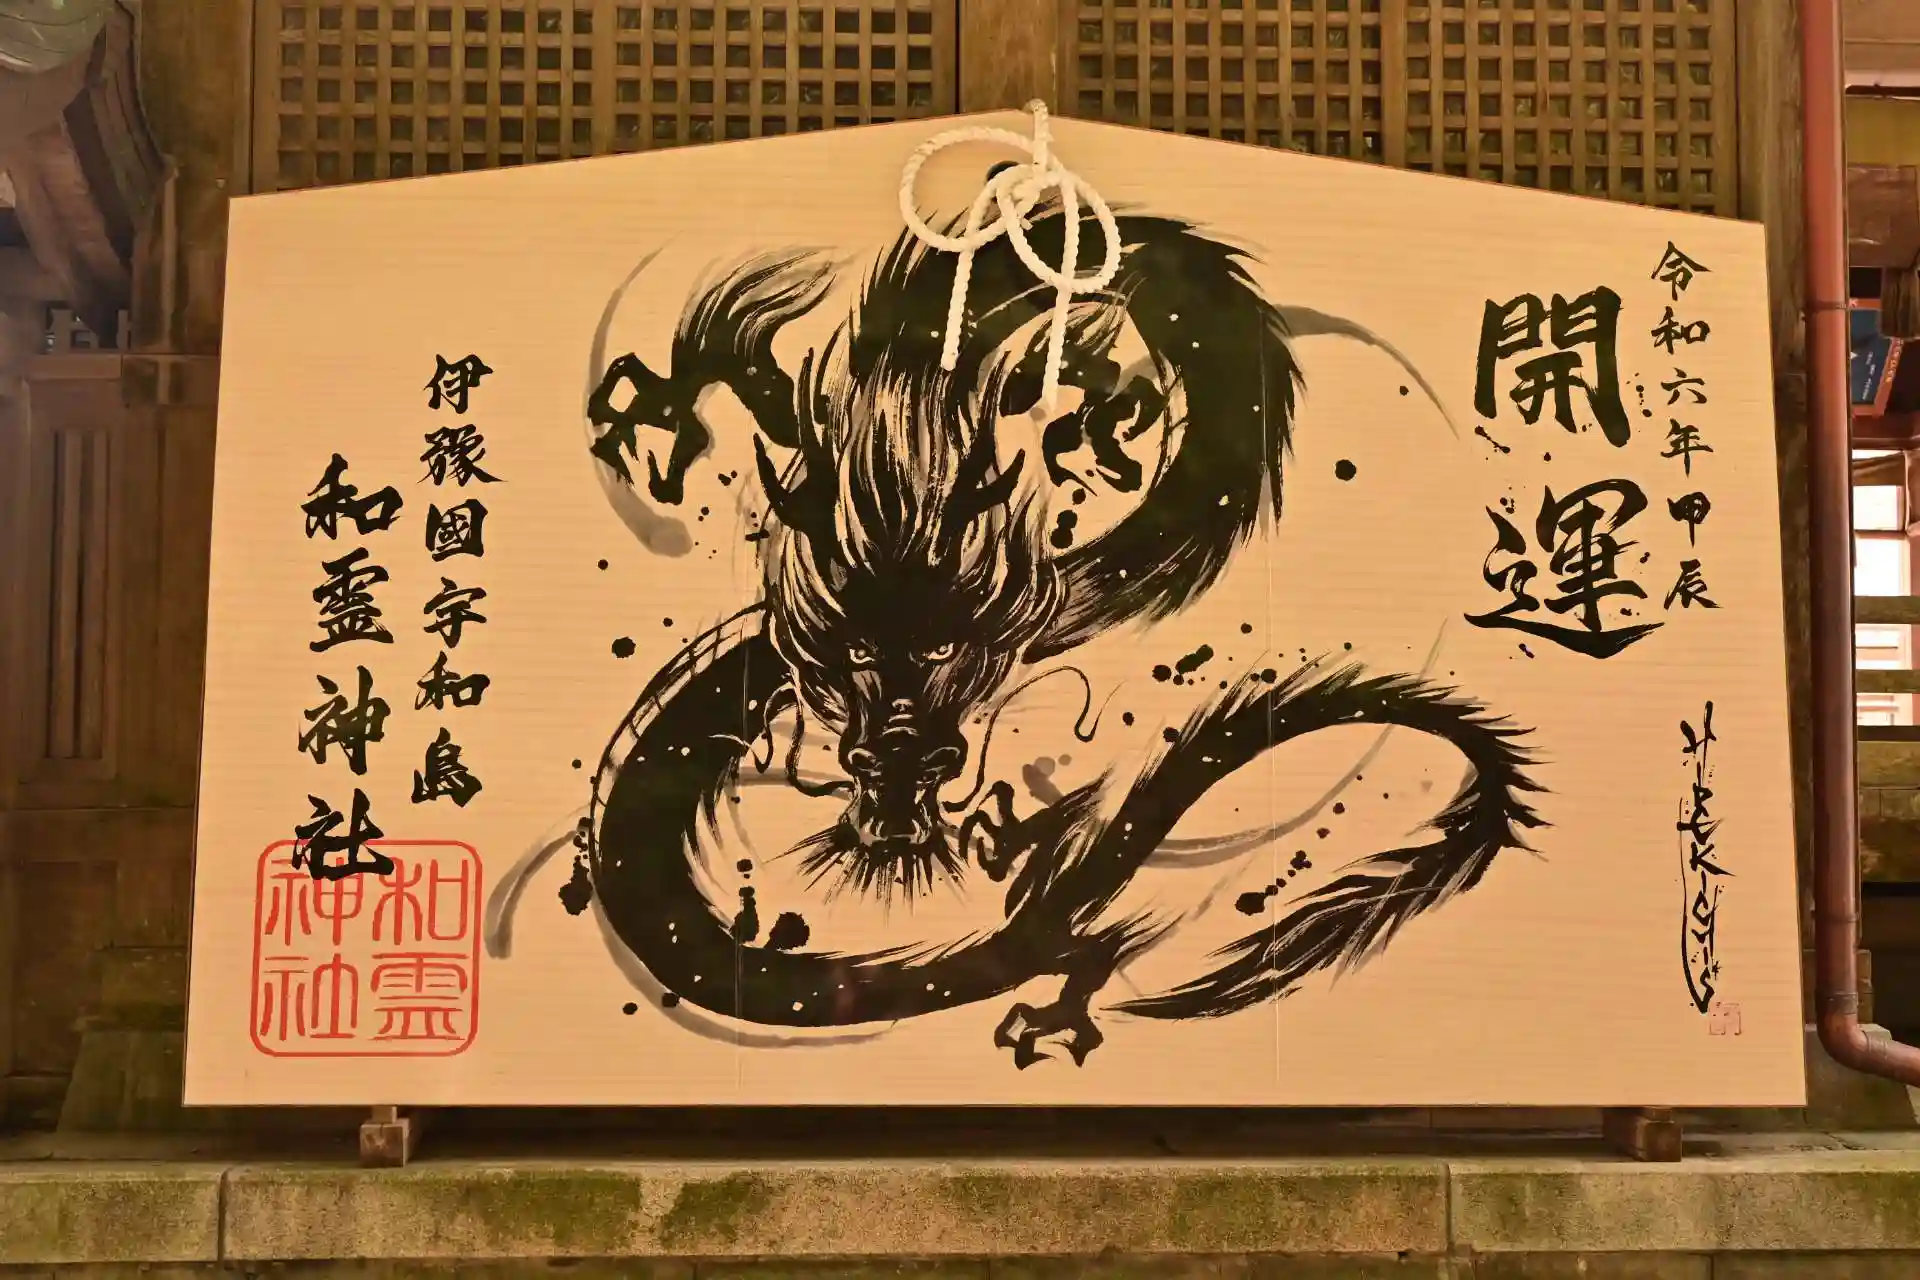 令和六年甲辰
開運
HIROKICHIS
伊豫國宇和島
和霊神社
和霊
神社